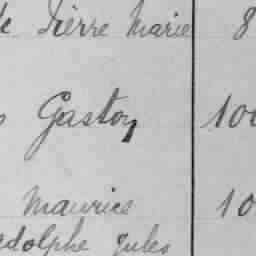 Pierre Marie 8
Gaston 100
Maurice 10
Adolphe Jules